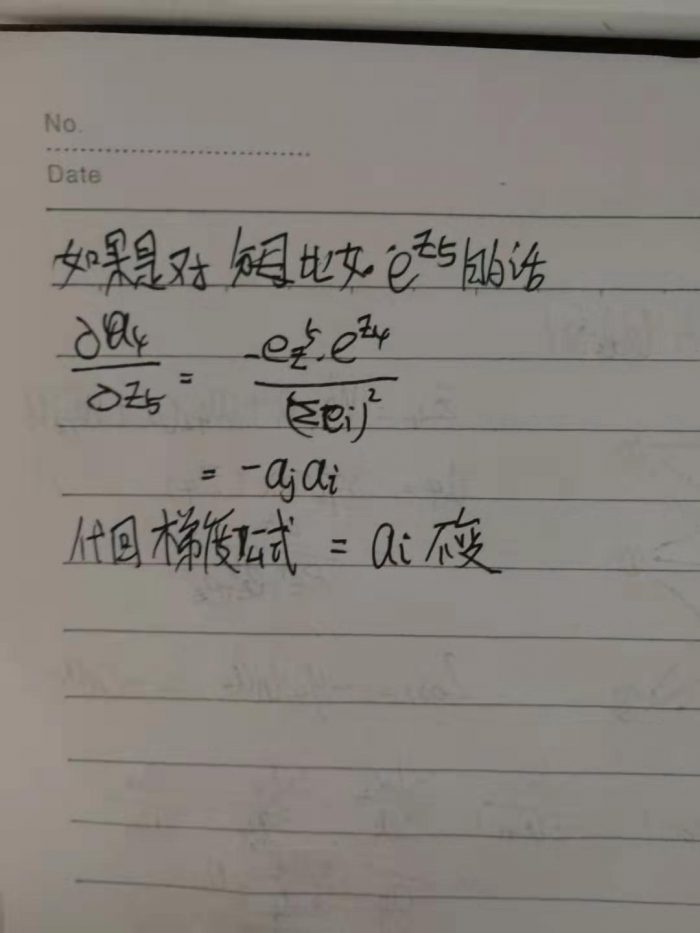 No.
Date
如果是对 分母比如 e^{z5} 的话
∂a4/∂z5 = -e^{z5}·e^{z4}/(Σei)^2
= -aj ai
代回梯度公式 = ai 不变